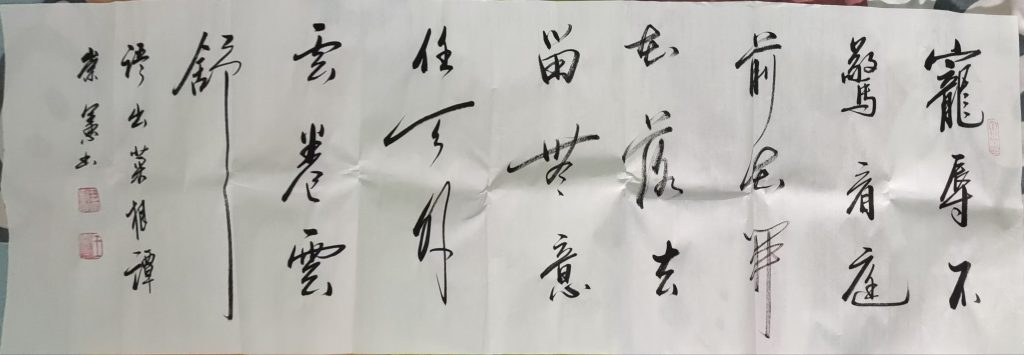 寵辱不
驚看庭
前花開
花落去
留無意
任天外
雲卷雲
舒
語出菜根譚
崇书